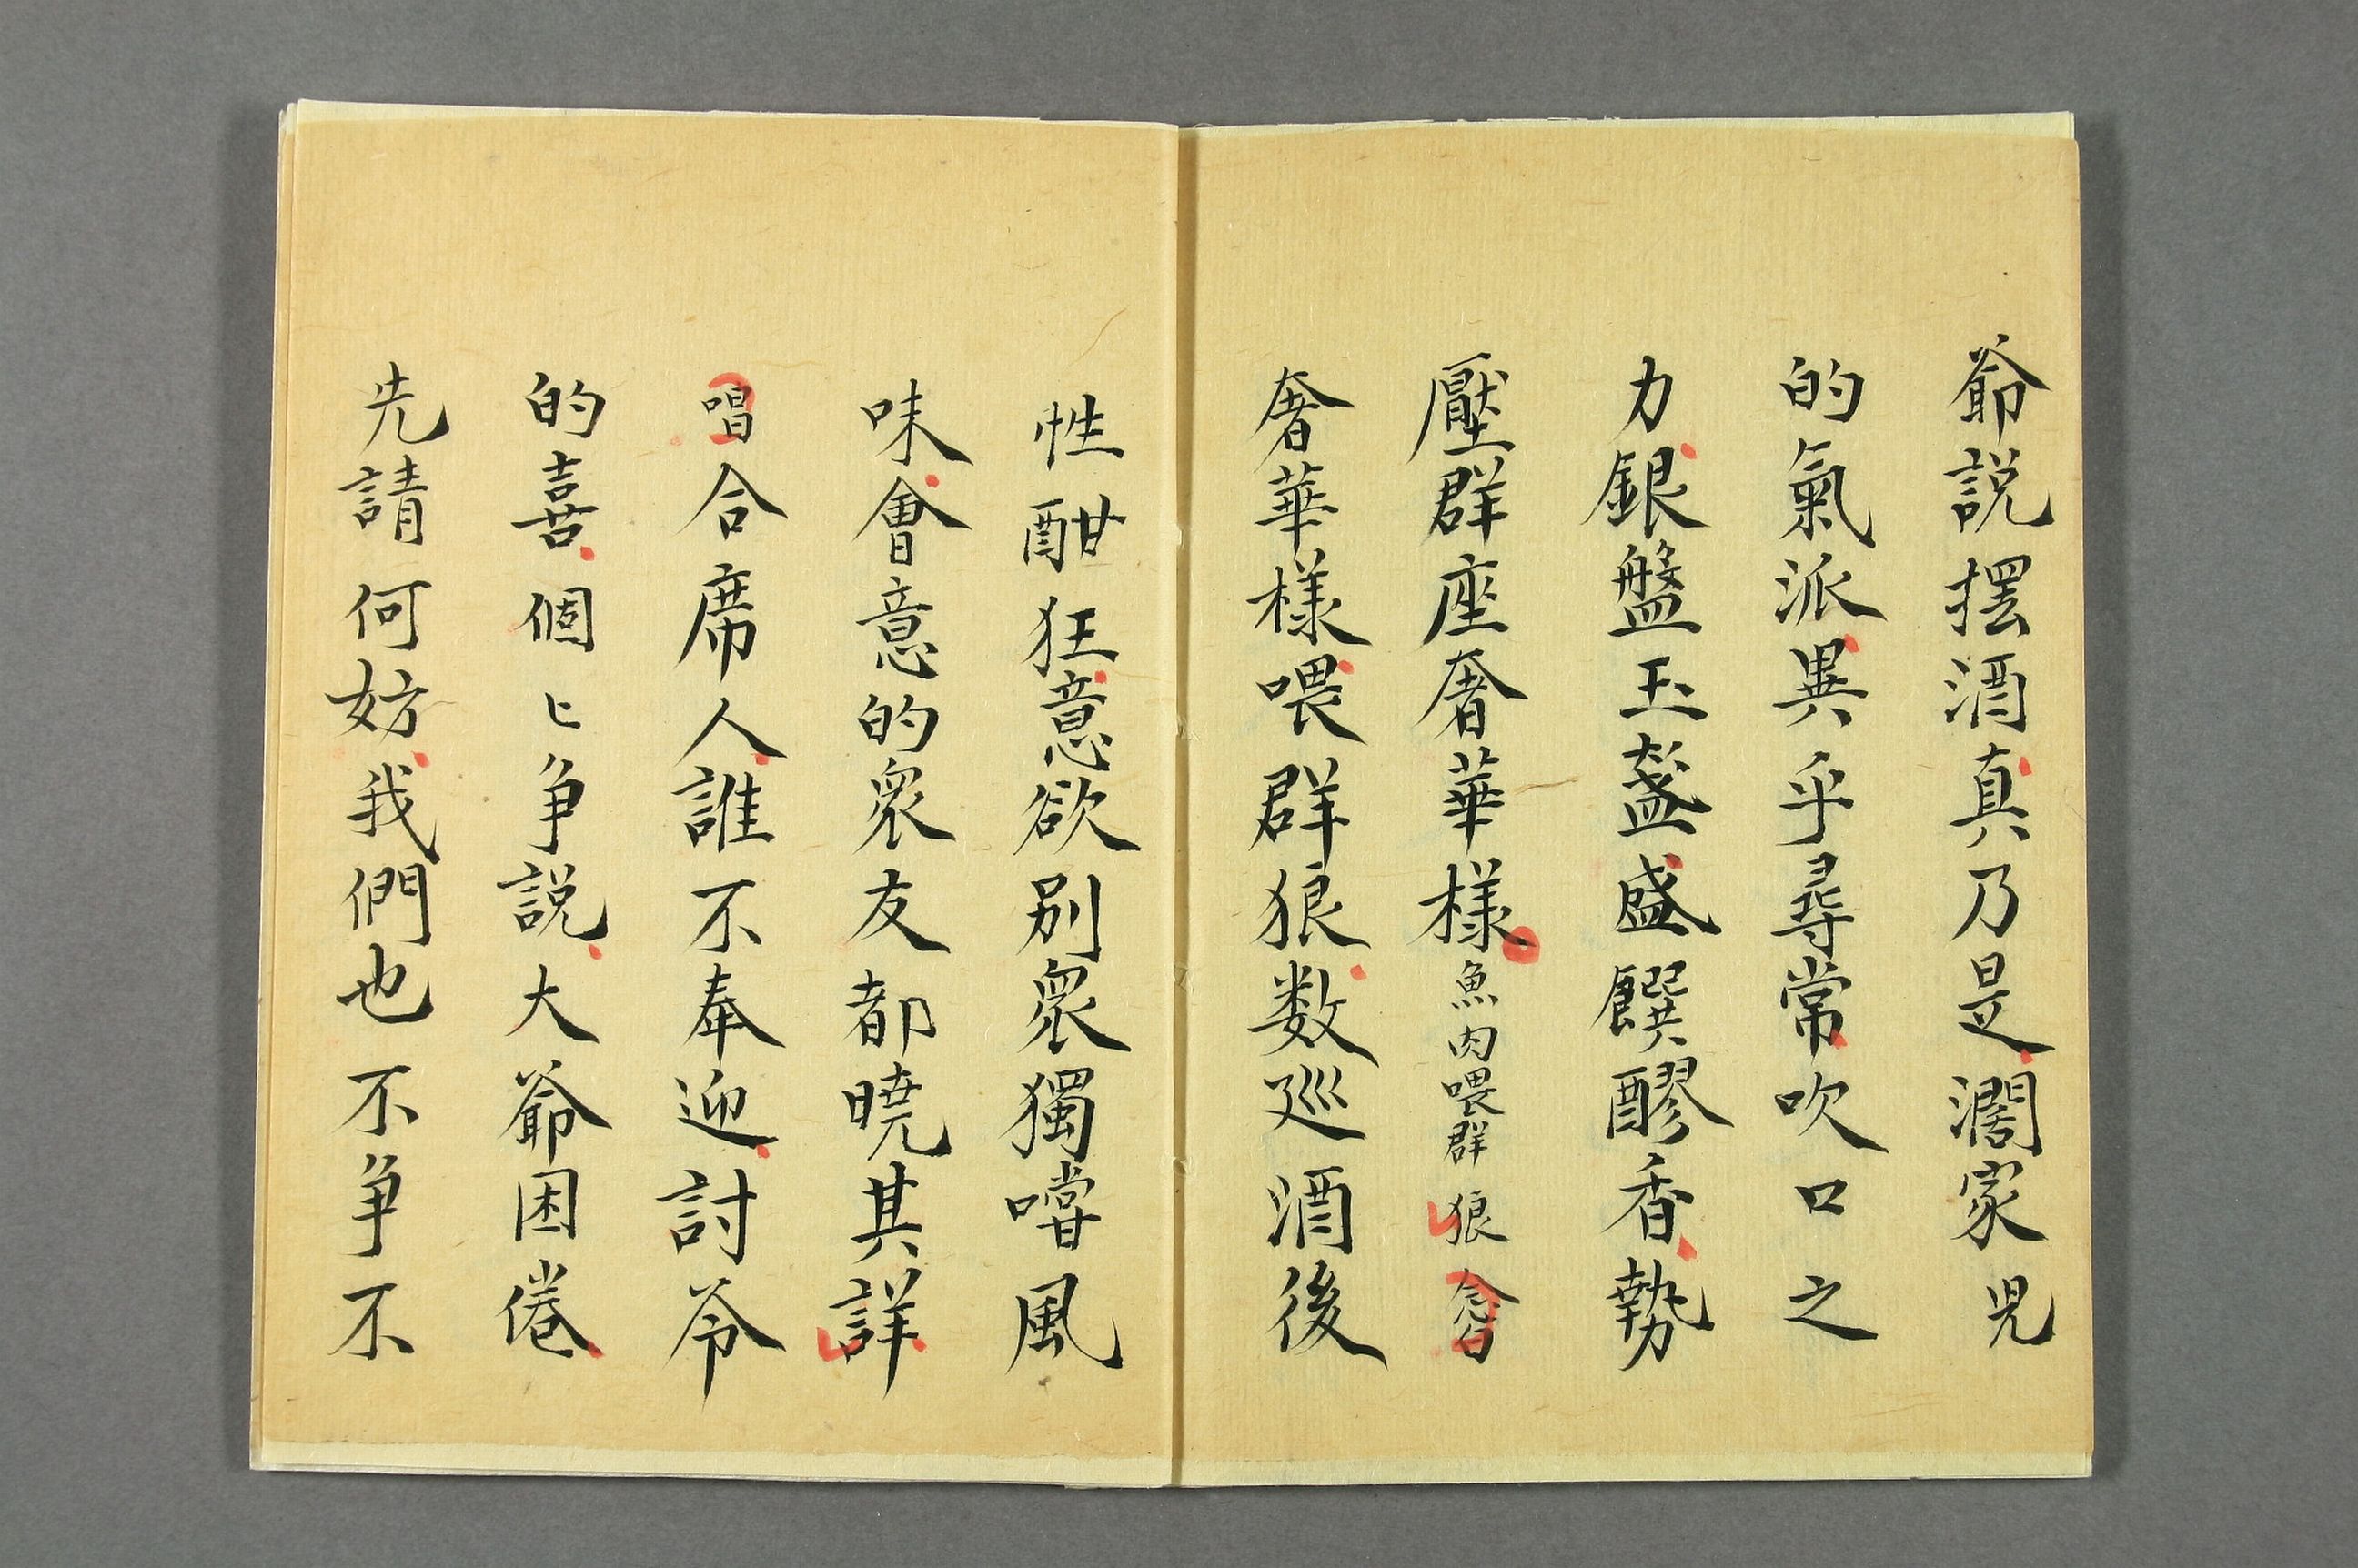 爺說摆酒真乃是濶家児
的氣派異乎尋常吹口之
力銀盤玉盞盛饌醪香勢
壓群座奢華樣魚肉喂群狼
奢華樣喂群狼数廵酒後
性酣狂意欲别衆獨嚐風
味會意的衆友都曉其詳
唱合席人誰不奉迎討爷
的喜個匕争說大爺困倦
先請何妨我們也不争不